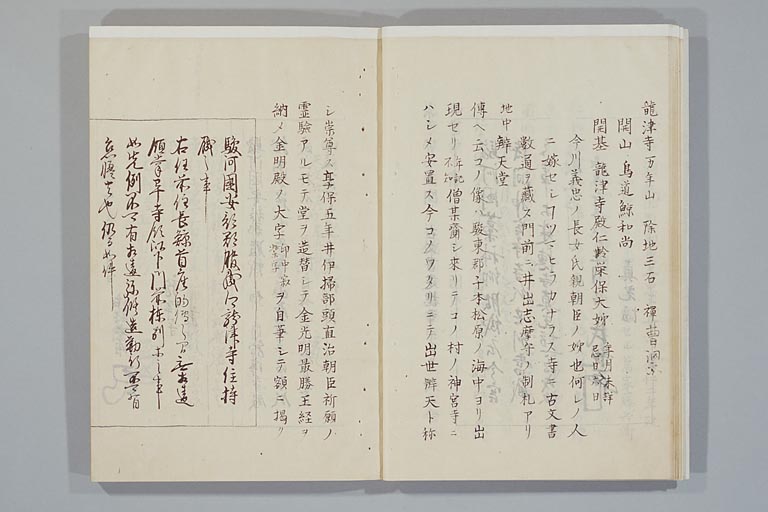 龍津寺 万年山 除地三石 禅曹洞宗
開山 鳥道鯨和尚
開基 龍津寺殿仁齢栄保大姉 年月未詳 忌日六日
今川義忠ノ長女氏親朝臣ノ姉也何レノ人
ニ嫁セシヿツマヒラカナラス寺ニ古文書
数通ヲ蔵ス門前ニ井出志摩守ノ制札アリ
地中 辨天堂
傳ヘ云コノ像ハ駿東郡千本松原ノ海中ヨリ出
現セリ 年記不知 僧某齎シ来リテコノ村ノ神宮寺ニ
ハシメ安置ス今コノワタリニテ出世辨天ト称
シ崇尊ス享保五年井伊掃部頭直治朝臣祈願ノ
霊驗アルモテ堂ヲ造替シテ金光明最勝王経ヲ
納メ金明殿ノ大字 ヲ自筆シテ額ニ掲ク
駿河國安部郡服織之内龍津寺住持
職之事
右任前住長緜首座的傳之旨永不相違
領掌早寺領以下門前棟別等之事
如先例不可有相違弥修造勤行不可有
怠慢者也仍而如件